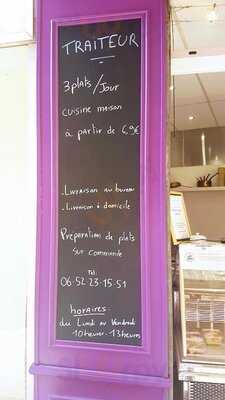 TRAITEUR
3 plats / Jour
cuisine maison
à partir de 6,9€
- Livraison au bureau
- Livraison à domicile
Préparation de plats
sur commande
Tél:
06.52.23.15.51
horaires:
du Lundi au Vendredi
10heures - 13heures